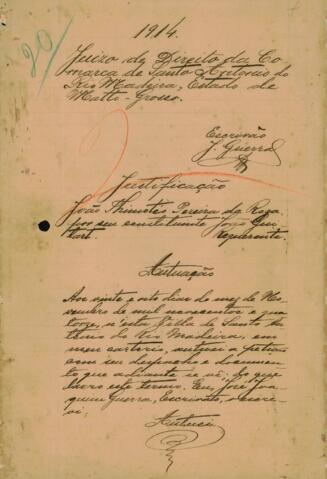 20/
1914.
Juizo de Direito da Co-
marca de Santo Antonio do
Rio Madeira, Estado de
Matto-Grosso.
Escrivão
J. Guerra
Justificação
João Thimoteo Pereira da Rosa
por seu constituinte José Gou-
Requerente.
Autuação
Aos vinte e oito dias do mez de No-
vembro de mil novecentos e qua-
torze, n'esta Villa de Santo An-
tonio do Rio Madeira, em
meu cartorio, autuei a petição
com seu despacho e documen-
to que adiante se vê; do que
lavro este termo. Eu, José Joa-
quim Guerra, Escrivão, o escre-
vi.
Autuei